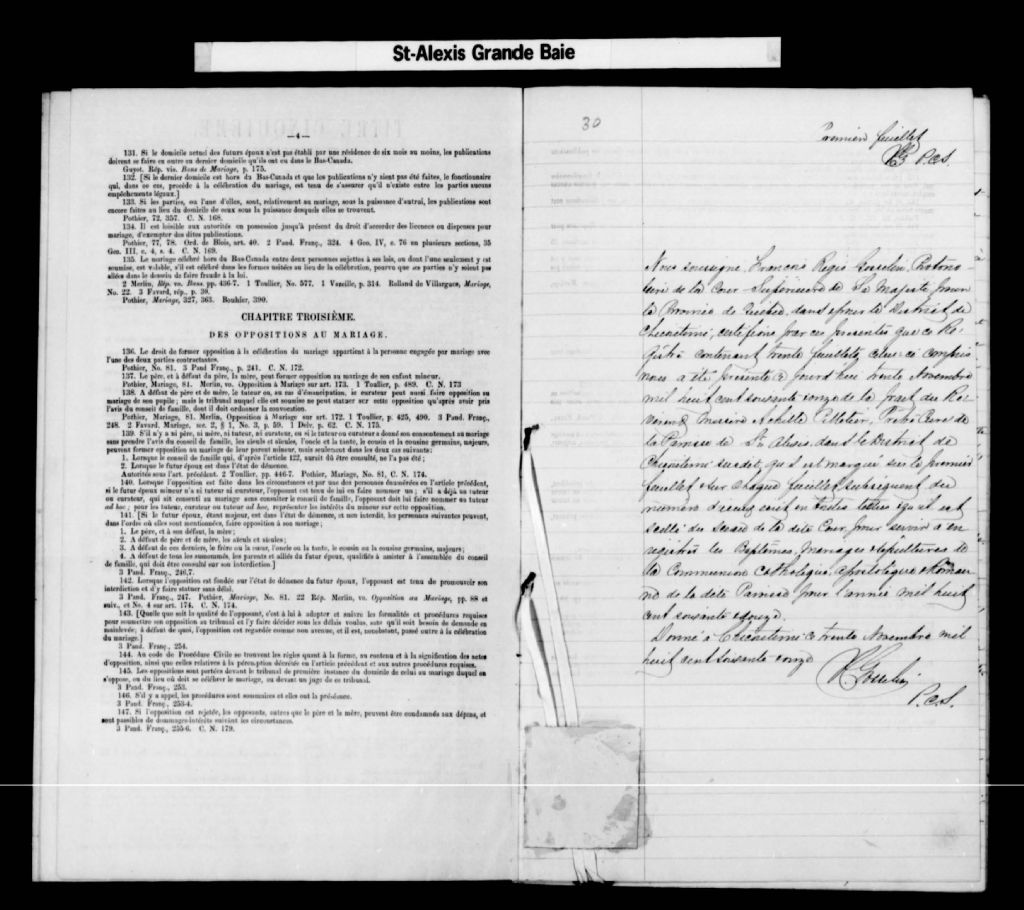 St-Alexis Grande Baie
—4—
131. Si le domicile actuel des futurs époux n'est pas établi par une résidence de six mois au moins, les publications
doivent se faire en outre au dernier domicile qu'ils ont eu dans le Bas-Canada.
Guyot, Rép. vis. Bans de Mariage, p. 175.
132. [Si le dernier domicile est hors du Bas-Canada et que les publications n'y aient pas été faites, le fonctionnaire
qui, dans ce cas, procède à la célébration du mariage, est tenu de s'assurer qu'il n'existe entre les parties aucuns
empêchements légaux.]
133. Si les parties, ou l'une d'elles, sont, relativement au mariage, sous la puissance d'autrui, les publications sont
encore faites au lieu du domicile de ceux sous la puissance desquels elles se trouvent.
Pothier, 72, 357. C. N. 168.
134. Il est loisible aux autorités en possession jusqu'à présent du droit d'accorder des licences ou dispenses pour
mariage, d'exempter des dites publications.
Pothier, 77, 78. Ord. de Blois, art. 40. 2 Pand. Franç., 324. 4 Geo. IV, c. 76 en plusieurs sections, 35
Geo. III, c. 4, s. 4. C. N. 169.
135. Le mariage célébré hors du Bas-Canada entre deux personnes sujettes à ses lois, ou dont l'une seulement y est
soumise, est valable, s'il est célébré dans les formes usitées au lieu de la célébration, pourvu que ces parties n'y soient pas
allées dans le dessein de faire fraude à la loi.
2 Merlin, Rép. vo. Bans, pp. 436-7. 1 Toullier, No. 577. 1 Vazeille, p. 314. Rolland de Villargues, Mariage,
No. 22. 3 Favard, rép., p. 39.
Pothier, Mariage, 327, 363. Bouhier, 390.
CHAPITRE TROISIÈME.
DES OPPOSITIONS AU MARIAGE.
136. Le droit de former opposition à la célébration du mariage appartient à la personne engagée par mariage avec
l'une des deux parties contractantes.
Pothier, No. 81. 3 Pand Franç., p. 241. C. N. 172.
137. Le père, et à défaut du père, la mère, peut former opposition au mariage de son enfant mineur.
Pothier, Mariage, 81. Merlin, vo. Opposition à Mariage sur art. 173. 1 Toullier, p. 489. C. N. 173
138. A défaut de père et de mère, le tuteur ou, au cas d'émancipation, le curateur peut aussi faire opposition au
mariage de son pupile; mais le tribunal auquel elle est soumise ne peut statuer sur cette opposition qu'après avoir pris
l'avis du conseil de famille, dont il doit ordonner la convocation.
Pothier, Mariage, 81. Merlin, Opposition à Mariage sur art. 172. 1 Toullier, p. 425, 490. 3 Pand. Franç.,
248. 2 Favard. Mariage, sec. 2, § 1, No. 3, p. 59. 1 Delv, p. 62. C. N. 175.
139. S'il n'y a ni père, ni mère, ni tuteur, ni curateur, ou si le tuteur ou curateur a donné son consentement au mariage
sans prendre l'avis du conseil de famille, les aïeuls et aïeules, l'oncle et la tante, le cousin et la cousine germains, majeurs,
peuvent former opposition au mariage de leur parent mineur, mais seulement dans les deux cas suivants:
1. Lorsque le conseil de famille qui, d'après l'article 122, aurait dû être consulté, ne l'a pas été;
2. Lorsque le futur époux est dans l'état de démence.
Autorités sous l'art. précédent. 2 Toullier, pp. 446-7. Pothier, Mariage, No. 81, C. N. 174.
140. Lorsque l'opposition est faite dans les circonstances et par une des personnes énumérées en l'article précédent,
si le futur époux mineur n'a ni tuteur ni curateur, l'opposant est tenu de lui en faire nommer un; s'il a déjà un tuteur
ou curateur, qui ait consenti au mariage sans consulter le conseil de famille, l'opposant doit lui faire nommer un tuteur
ad hoc; pour les tuteur, curateur ou tuteur ad hoc, représenter les intérêts du mineur sur cette opposition.
141. [Si le futur époux, étant majeur, est dans l'état de démence, et non interdit, les personnes suivantes peuvent,
dans l'ordre où elles sont mentionnées, faire opposition à son mariage;
1. Le père, et à son défaut, la mère;
2. A défaut de père et de mère, les aïeuls et aïeules;
3. A défaut de ces derniers, le frère ou la sœur, l'oncle ou la tante, le cousin ou la cousine germains, majeurs;
4. A défaut de tous les susnommés, les parents et alliés du futur époux, qualifiés à assister à l'assemblée du conseil
de famille, qui doit être consulté sur son interdiction.]
3 Pand. Franç., 246,7.
142. Lorsque l'opposition est fondée sur l'état de démence du futur époux, l'opposant est tenu de promouvoir son
interdiction et d'y faire statuer sans délai.
3 Pand. Franç., 247. Pothier, Mariage, No. 81. 22 Rép. Merlin, vo. Opposition au Mariage, pp. 88 et
suiv., et No. 4 sur art. 174. C. N. 174.
143. [Quelle que soit la qualité de l'opposant, c'est à lui à adopter et suivre les formalités et procédures requises
pour soumettre son opposition au tribunal et l'y faire décider sous les délais voulus, sans qu'il soit besoin de demande en
mainlevée; à défaut de quoi, l'opposition est regardée comme non avenue, et il est, nonobstant, passé outre à la célébration
du mariage.]
3 Pand. Franç., 254.
144. Au code de Procédure Civile se trouvent les règles quant à la forme, au contenu et à la signification des actes
d'opposition, ainsi que celles relatives à la péremption décrétée en l'article précédent et aux autres procédures requises.
145. Les oppositions sont portées devant le tribunal de première instance du domicile de celui au mariage duquel on
s'oppose, ou du lieu où doit se célébrer le mariage, ou devant un juge de ce tribunal.
3 Pand. Franç., 253.
146. S'il y a appel, les procédures sont sommaires et elles ont la préséance.
3 Pand. Franç., 253-4.
147. Si l'opposition est rejetée, les opposants, autres que le père et la mère, peuvent être condamnés aux dépens, et
sont passibles de dommages-intérêts suivant les circonstances.
3 Pand. Franç., 255-6. C. N. 179.
30
Premier feuillet
P.C.S.
Nous soussigné, François Régis Gosselin, Protono-
taire de la Cour Supérieure de Sa Majesté, pour
la Province de Québec, dans et pour le District de
Chicoutimi, certifions par ces présentes que ce Re-
gistre contenant trente feuillets, celui-ci compris
nous a été présenté ce jourd'hui trente Novembre
mil huit cent soixante et onze de la part du Ré-
vérend Messire Achille Pelletier, Prêtre Curé de
la Paroisse de St. Alexis, dans le District de
Chicoutimi susdit, qu'il est marqué sur le premier
feuillet et sur chaque feuillet subséquent du
numéro d'iceux écrit en toutes lettres et qu'il est
scellé du sceau de la dite Cour pour servir à en
registrer les Baptêmes, Mariages et Sépultures de
la Communion Catholique, apostolique et Romai
ne de la dite Paroisse pour l'année mil huit
cent soixante et douze.
Donné à Chicoutimi ce trente Novembre mil
huit cent soixante onze
Gosselin
P.C.S.